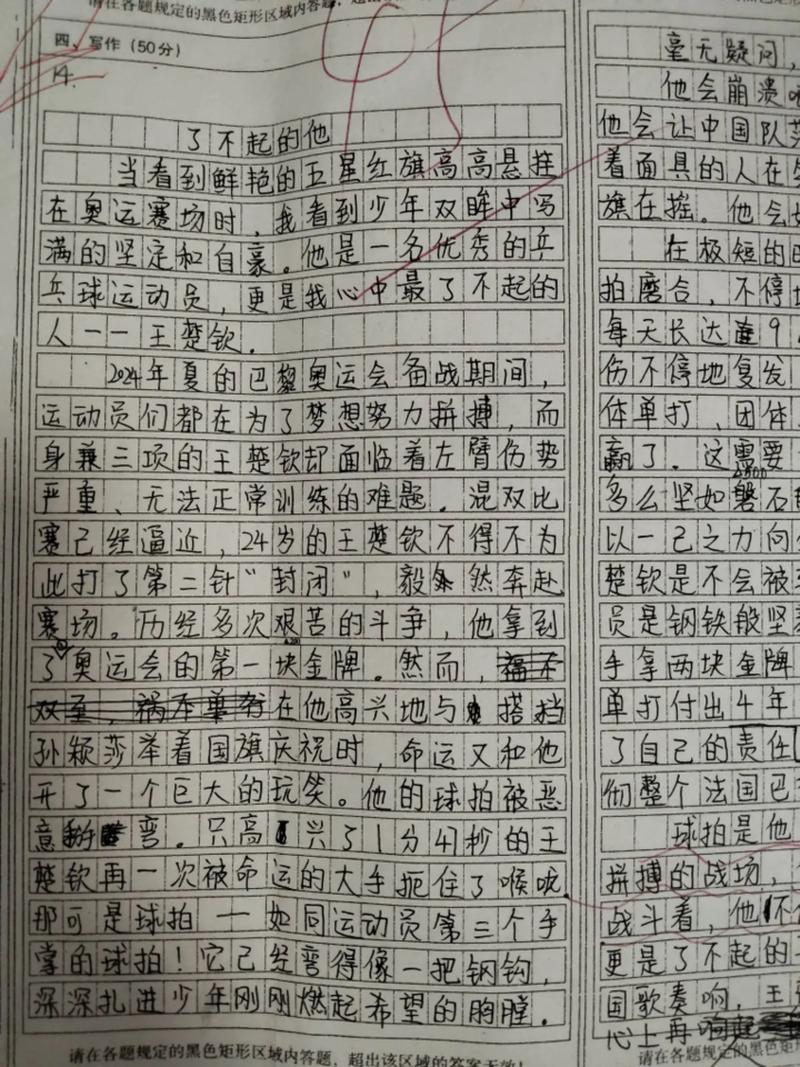 请在各题规定的黑色矩形区域内答题，超出
四、写作（50分）
14.
了不起的他
当看到鲜艳的五星红旗高高悬挂
在奥运赛场时，我看到少年双眸中写
满的坚定和自豪。他是一名优秀的乒
乓球运动员，更是我心中最了不起的
人——王楚钦.
2024年夏的巴黎奥运会备战期间，
运动员们都在为了梦想努力拼搏，而
身兼三项的王楚钦却面临着左臂伤势
严重、无法正常训练的难题.混双比
赛已经逼近，24岁的王楚钦不得不为
此打了第二针“封闭”，毅然奔赴
赛场。历经多次艰苦的斗争，他拿到
了奥运会的第一块金牌.然而，
在他高兴地与搭挡
孙颖莎举着国旗庆祝时，命运又和他
开了一个巨大的玩笑。他的球拍被恶
意弯.只高兴了1分41秒的王
楚钦再一次被命运的大手扼住了喉咙.
那可是球拍——如同运动员第三个手
掌的球拍！它已经弯得像一把钢钩，
深深扎进少年刚刚燃起希望的胸膛.
请在各题规定的黑色矩形区域内答题，超出该区域的答案无效！
请在各题规定的黑色矩形区域内答
毫无疑问，
他会崩溃
他会让中国队
着面具的人在
旗在摇.他会
在极短的
拍磨合，不停
每天长达9
伤不停地复发
体单打、团体
赢了.这需要
多么坚如磐石
以一己之力向
楚钦是不会被
员是钢铁般坚
手拿两块金牌
单打付出4年
了自己的责任
彻整个法国巴
球拍是他
拼搏的战场，
战斗着，他不
更是了不起的一
国歌奏响，王
心上再
请在各题规定的黑色矩